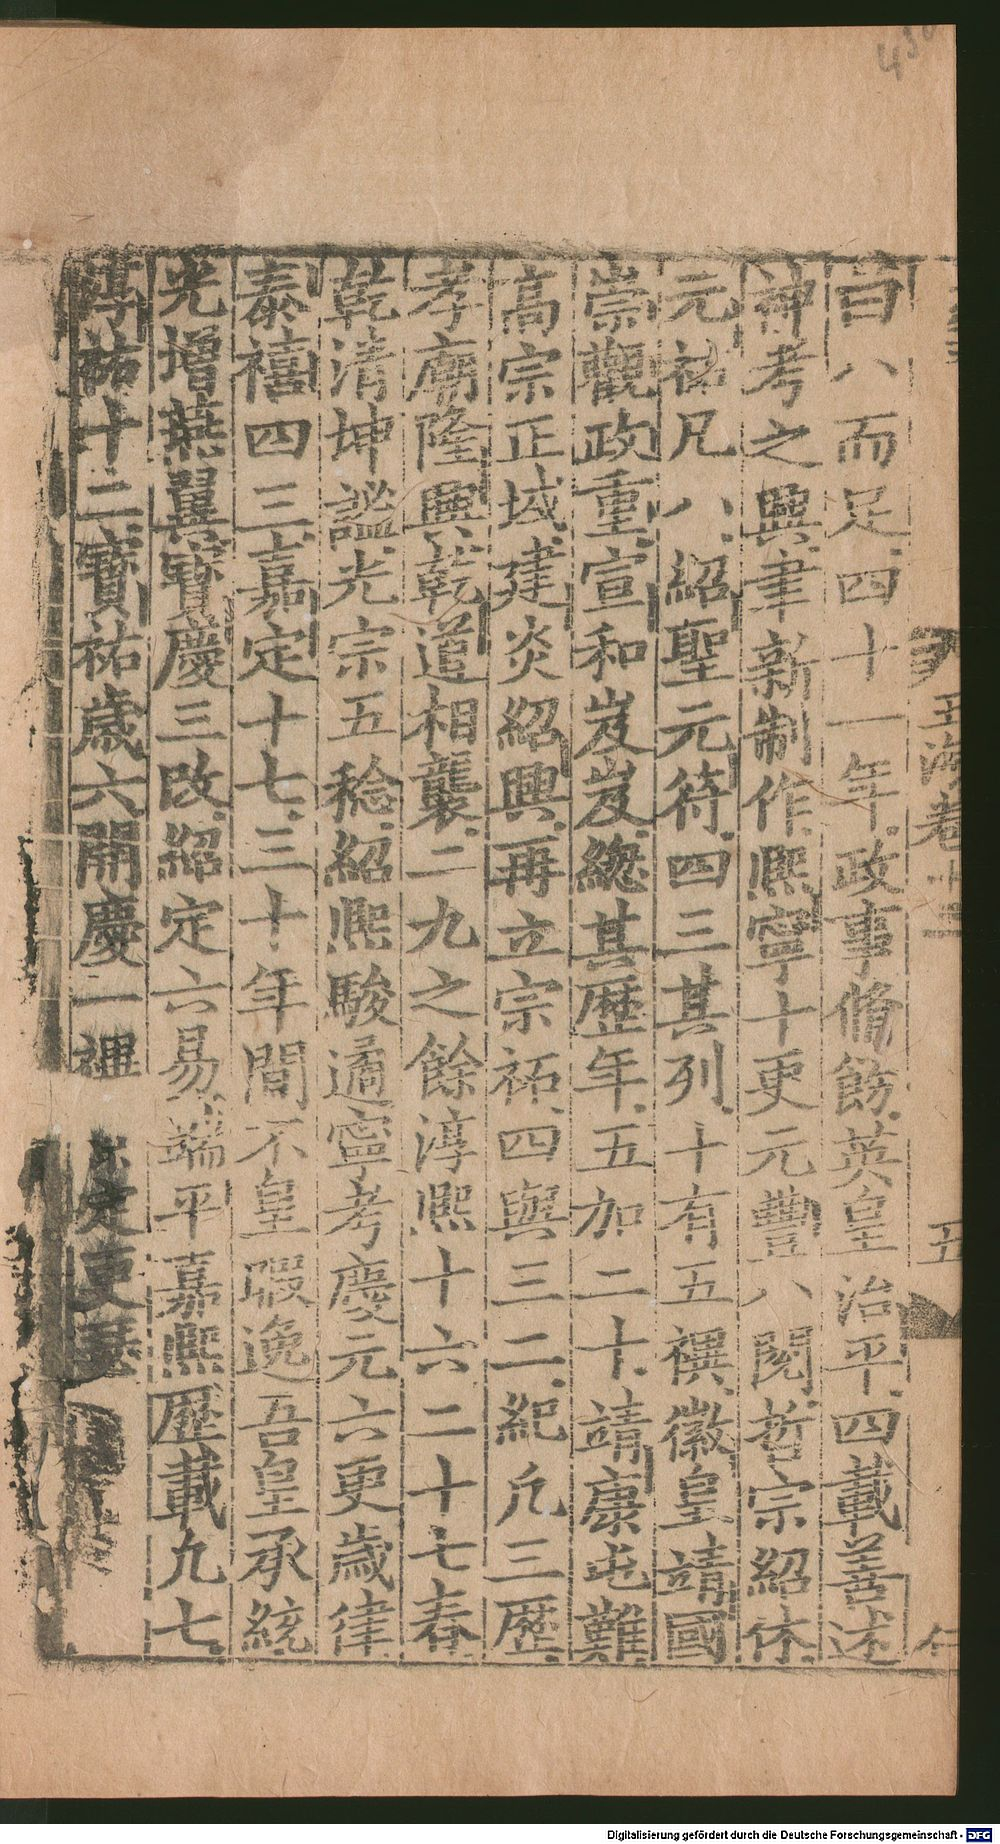 百八而足四十一年政事脩飭英皇治平四載善述
神考之興聿新制作熙寧十更元豐八閱哲宗紹休
元祐凡八紹聖元符四三其列十有五禩徽皇靖國
崇觀政重宣和岌岌總其歷年五加二十靖康屯難
高宗正域建炎紹興再立宗祏四與三二紀凢三歷
孝廟隆興乾道相襲二九之餘淳熙十六二十七春
乾清坤謐光宗五稔紹熙駿遹寧考慶元六更歲律
泰禧四三嘉定十七三十年間不皇暇逸吾皇承統
光增燕翼寶慶三改紹定六易端平嘉熙歷載九七
淳祐十二寶祐歲六開慶一禩定更
玉海卷十三
五
430
Digitalisierung gefördert durch die Deutsche Forschungsgemeinschaft - DFG